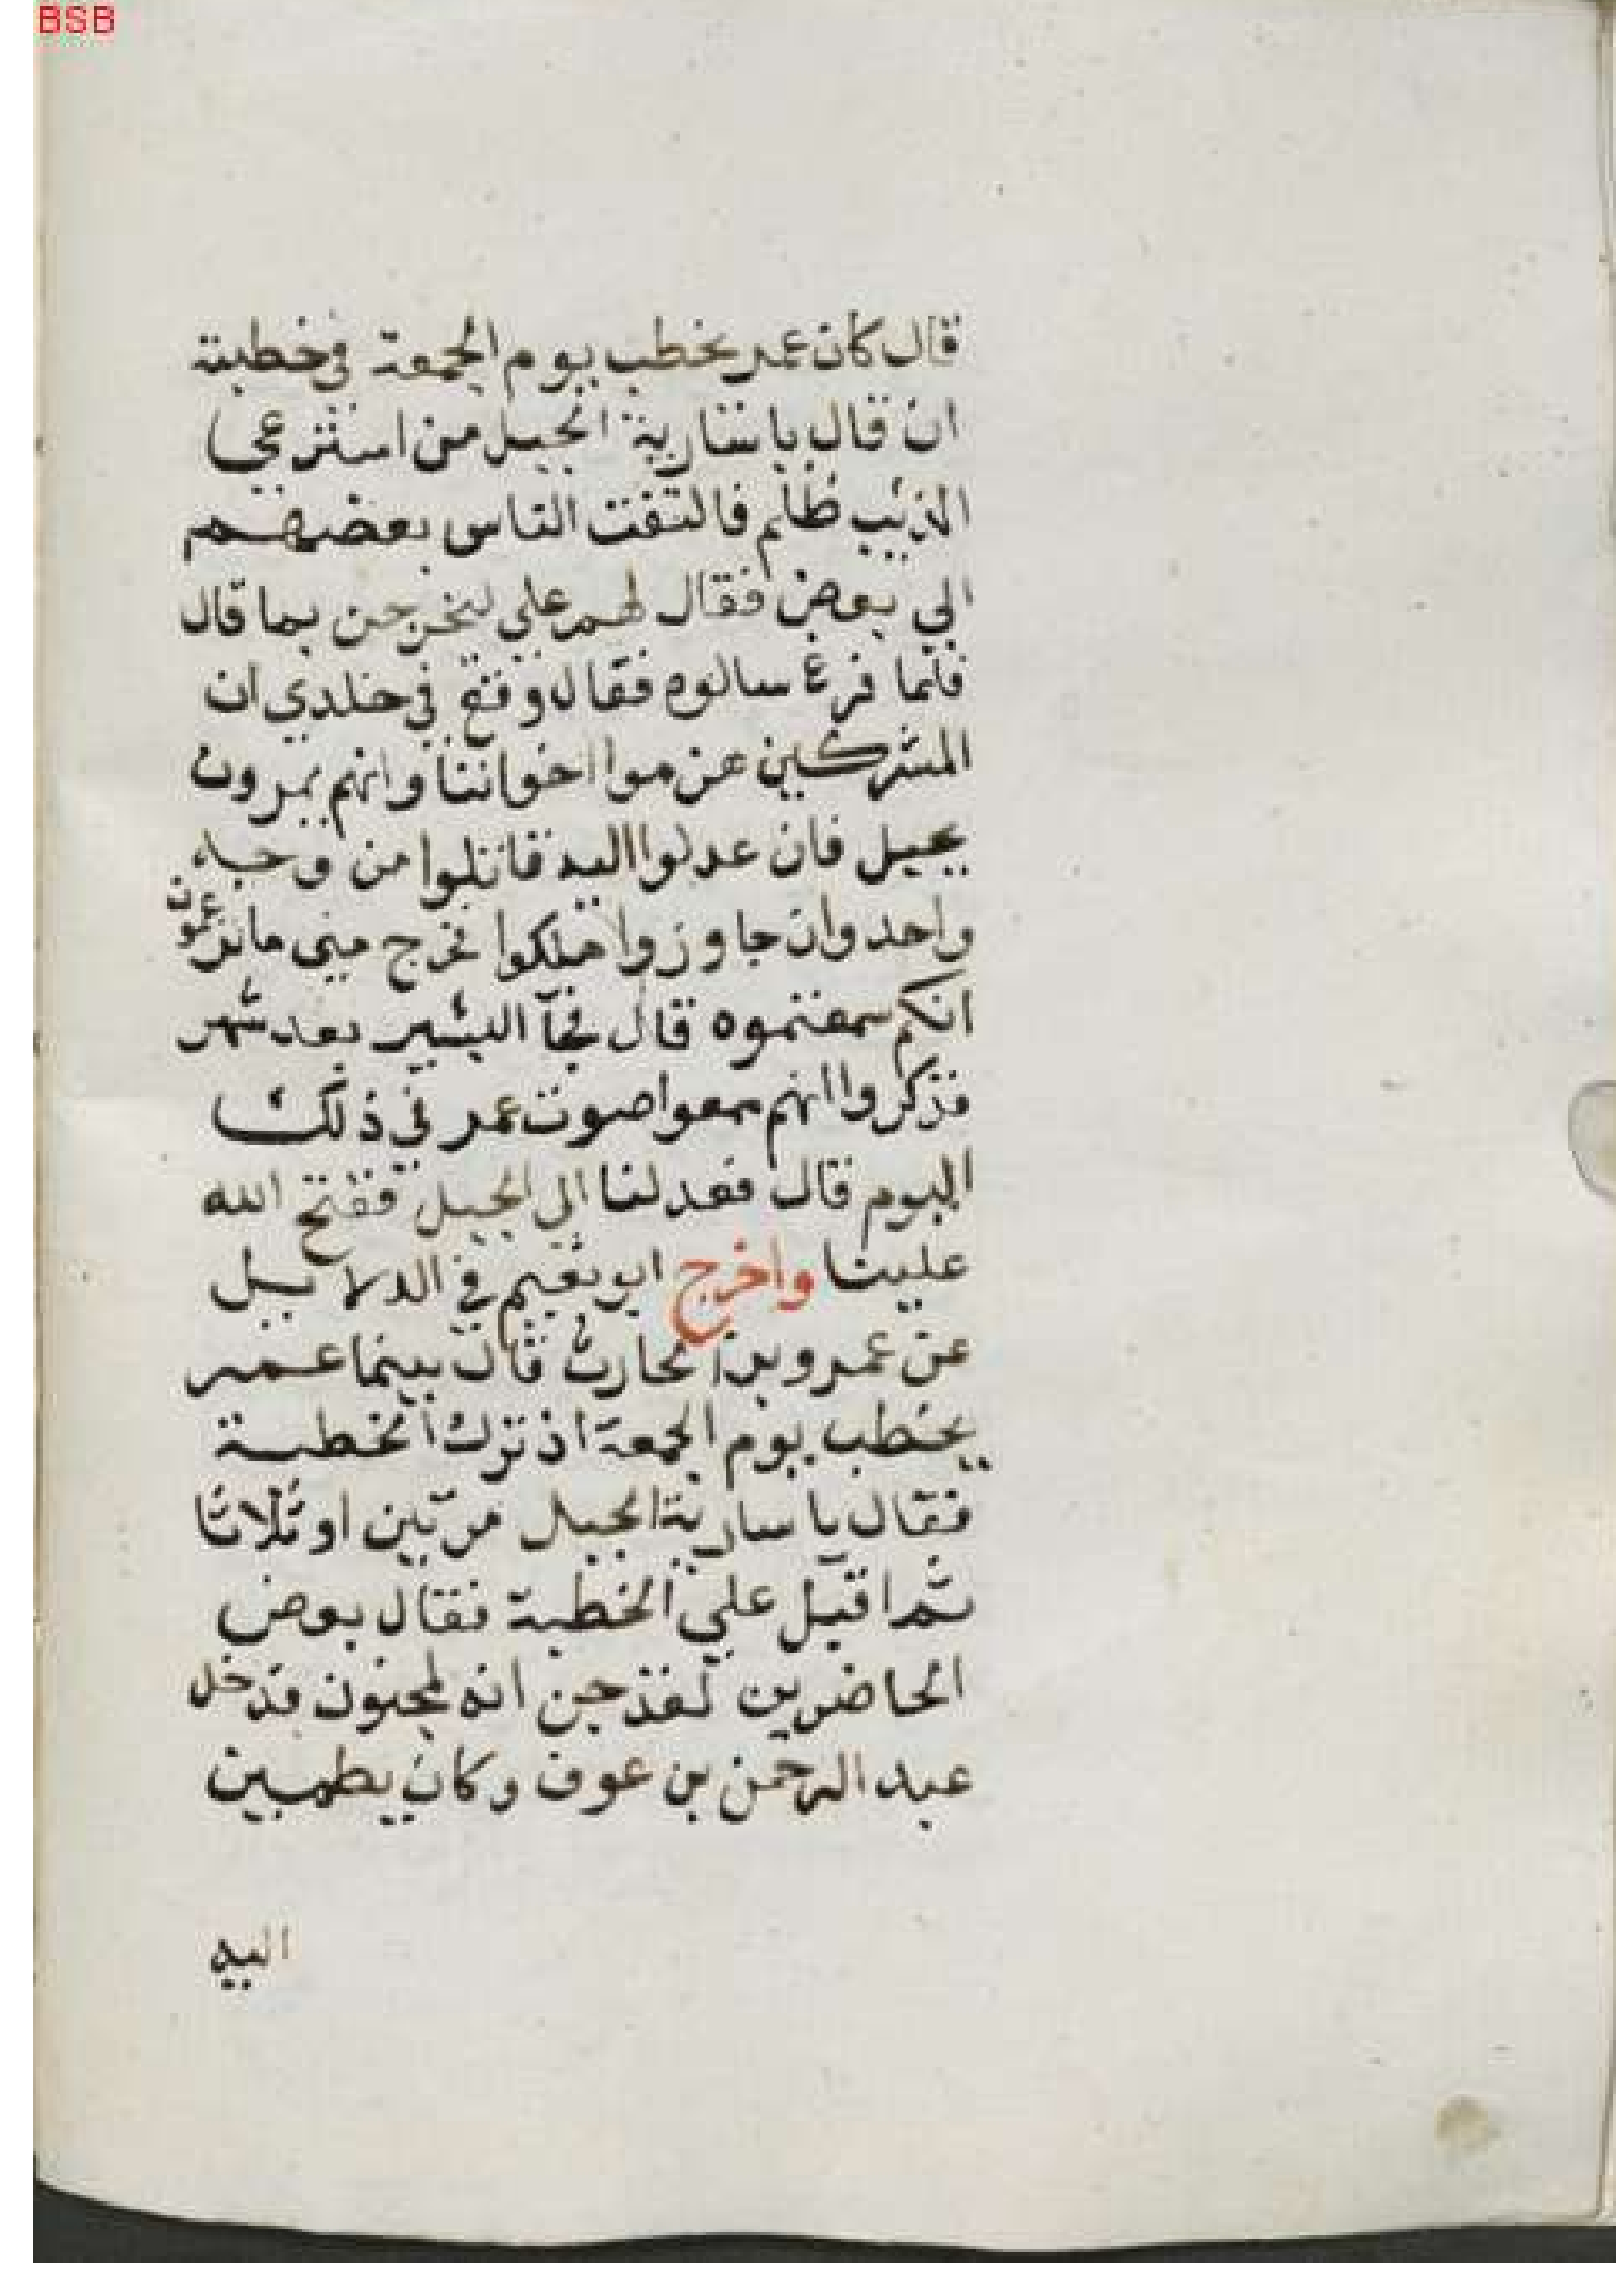 BSB
قال كان عمر يخطب يوم الجمعة في خطبته
ان قال يا سارية الجبل من استرعي
الذئب ظلم فالتفت الناس بعضهم
الي بعض فقال لهم علي ليخرجن بما قال
فلما فرغ سالوه فقال وقع في خلدي ان
المشركين هزموا اخواننا وانهم يمرون
بجبل فان عدلوا اليه قاتلوا من وجه
واحد وان جاوزوا هلكوا فخرج مني ما تزعمون
انكم سمعتموه قال فجآ البشير بعد شهر
فذكروا انهم سمعوا صوت عمر في ذلك
اليوم قال فعدلنا الي الجبل ففتح الله
علينا واخرج ابو نعيم في الدلايل
عن عمرو بن الحارث قال بينما عمر
يخطب يوم الجمعة اذ ترك الخطبة
فقال يا سارية الجبل مرتين او ثلاثا
ثم اقبل علي الخطبة فقال بعض
الحاضرين لقد جن انه لمجنون فدخل
عبد الرحمن بن عوف وكان يطمين
اليه